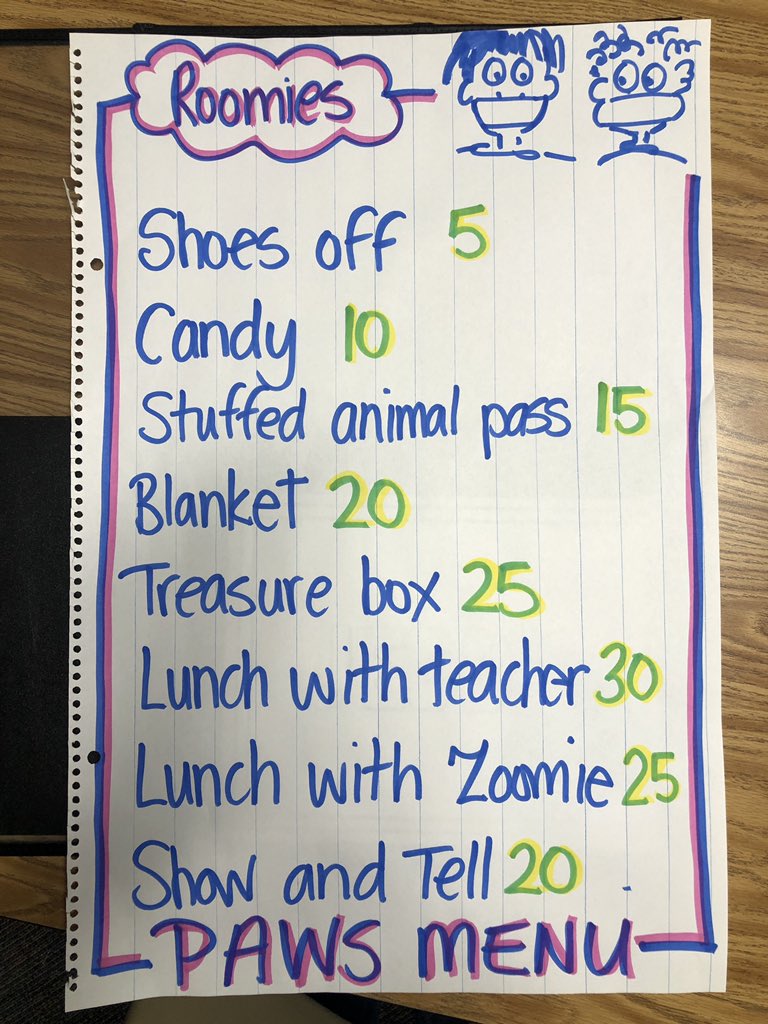 Roomies
Shoes off 5
Candy 10
Stuffed animal pass 15
Blanket 20
Treasure box 25
Lunch with teacher 30
Lunch with Zoomie 25
Show and Tell 20
PAWS MENU